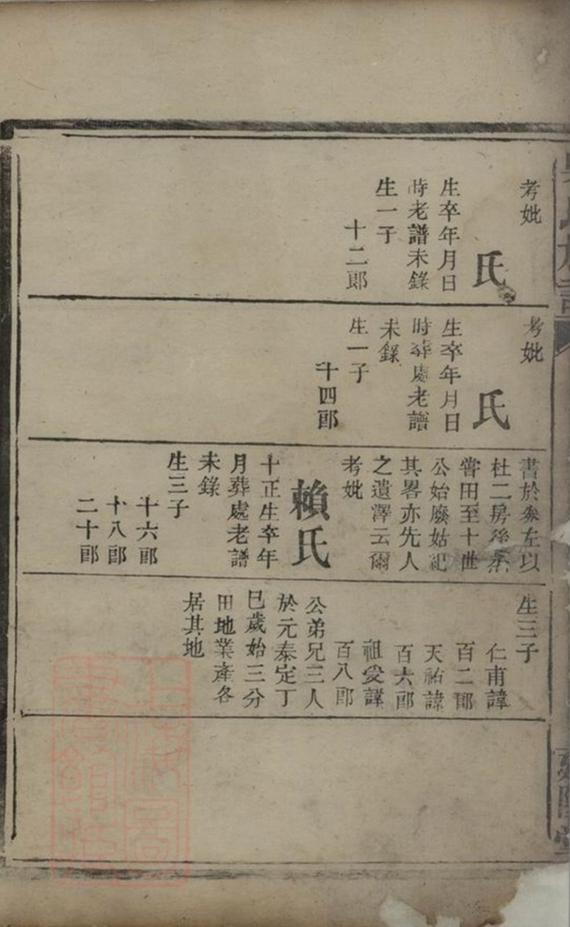 考妣
氏
生卒年月日
時老譜未錄
生一子
十二郎
考妣
氏
生卒年月日
時葬處老譜
未錄
生一子
十四郎
書於叅左以
杜二房孫
嘗田至十世
公始廢姑祀
其畧亦先人
之遺澤云爾
考妣
賴氏
十正生卒年
月葬處老譜
未錄
生三子
十六郎
十八郎
二十郎
生三子
仁甫諱
百二郎
天祐諱
百六郎
祖受諱
百八郎
公弟兄三人
於元泰定丁
巳歲始三分
田地業產各
居其地